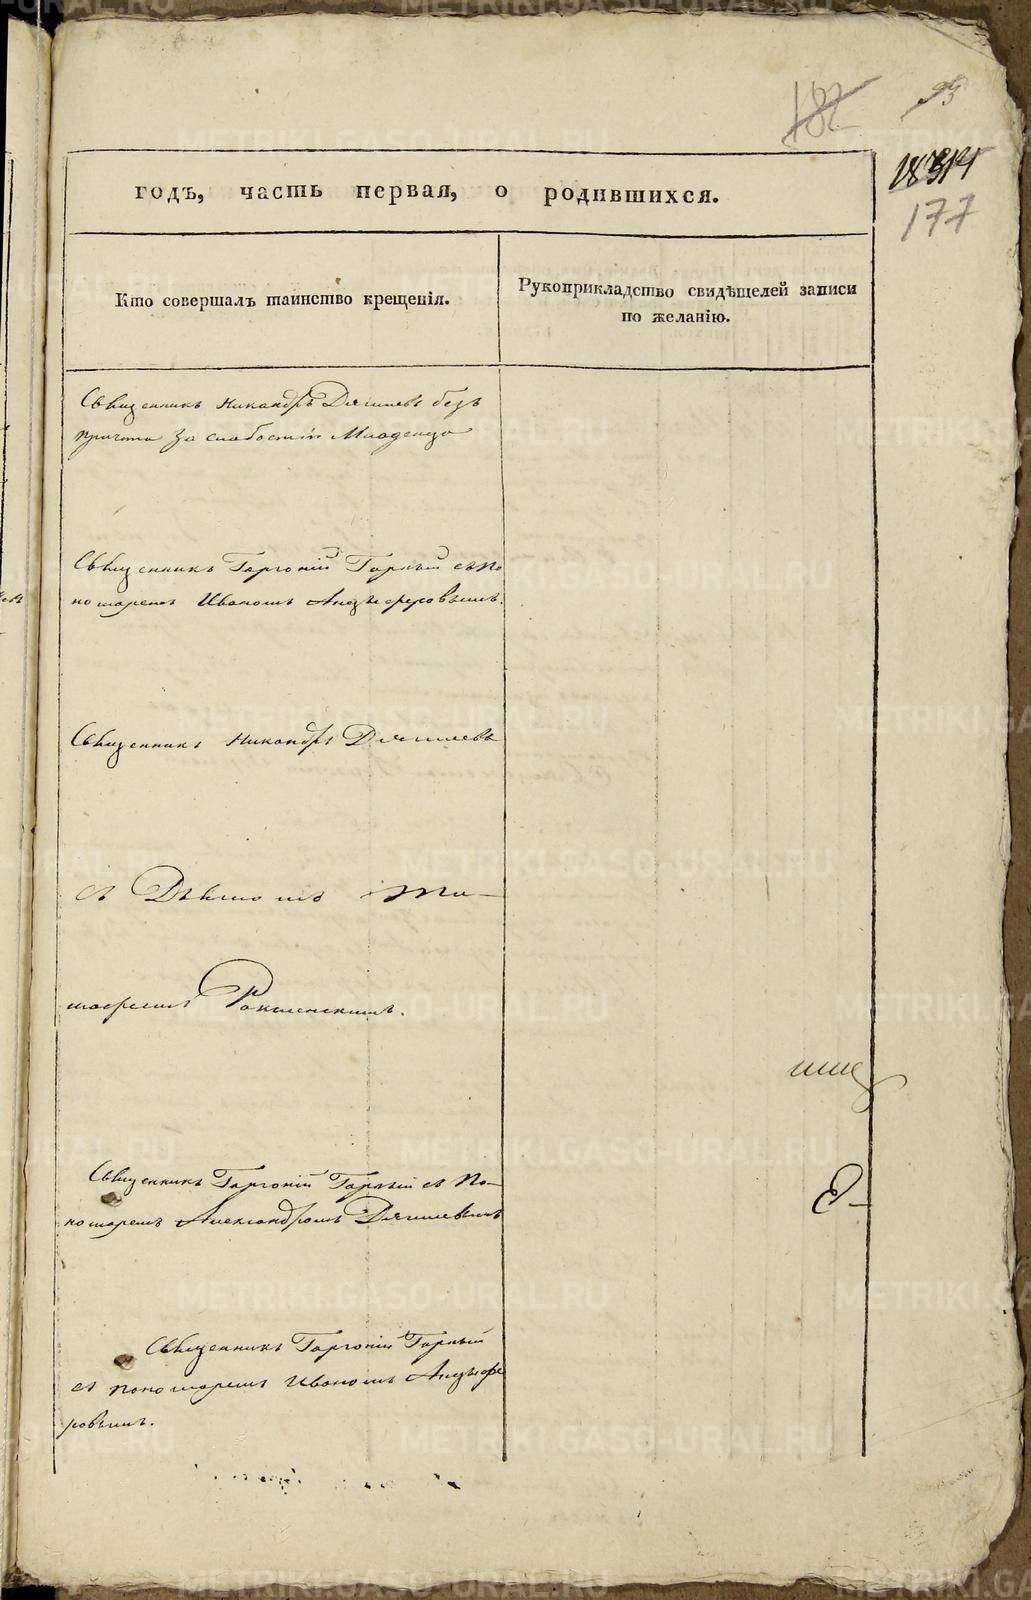 182
93
177
годъ, часть первая, о родившихся.
Кто совершалъ таинство крещенія.
Рукоприкладство свидѣтелей записи
по желанію.
Священникъ Никандръ Дягилевъ безъ
причта за слабостію Младенца
Священникъ Горгоній Горный съ По
номаремъ Иваномъ
Священникъ Никандръ Дягилевъ
съ
Священникъ Горгоній Горный съ По-
номаремъ Александромъ Дягилевымъ
Священникъ Горгоній Горный
съ пономаремъ Иваномъ
ровымъ.
METRIKI.GASO-URAL.RU